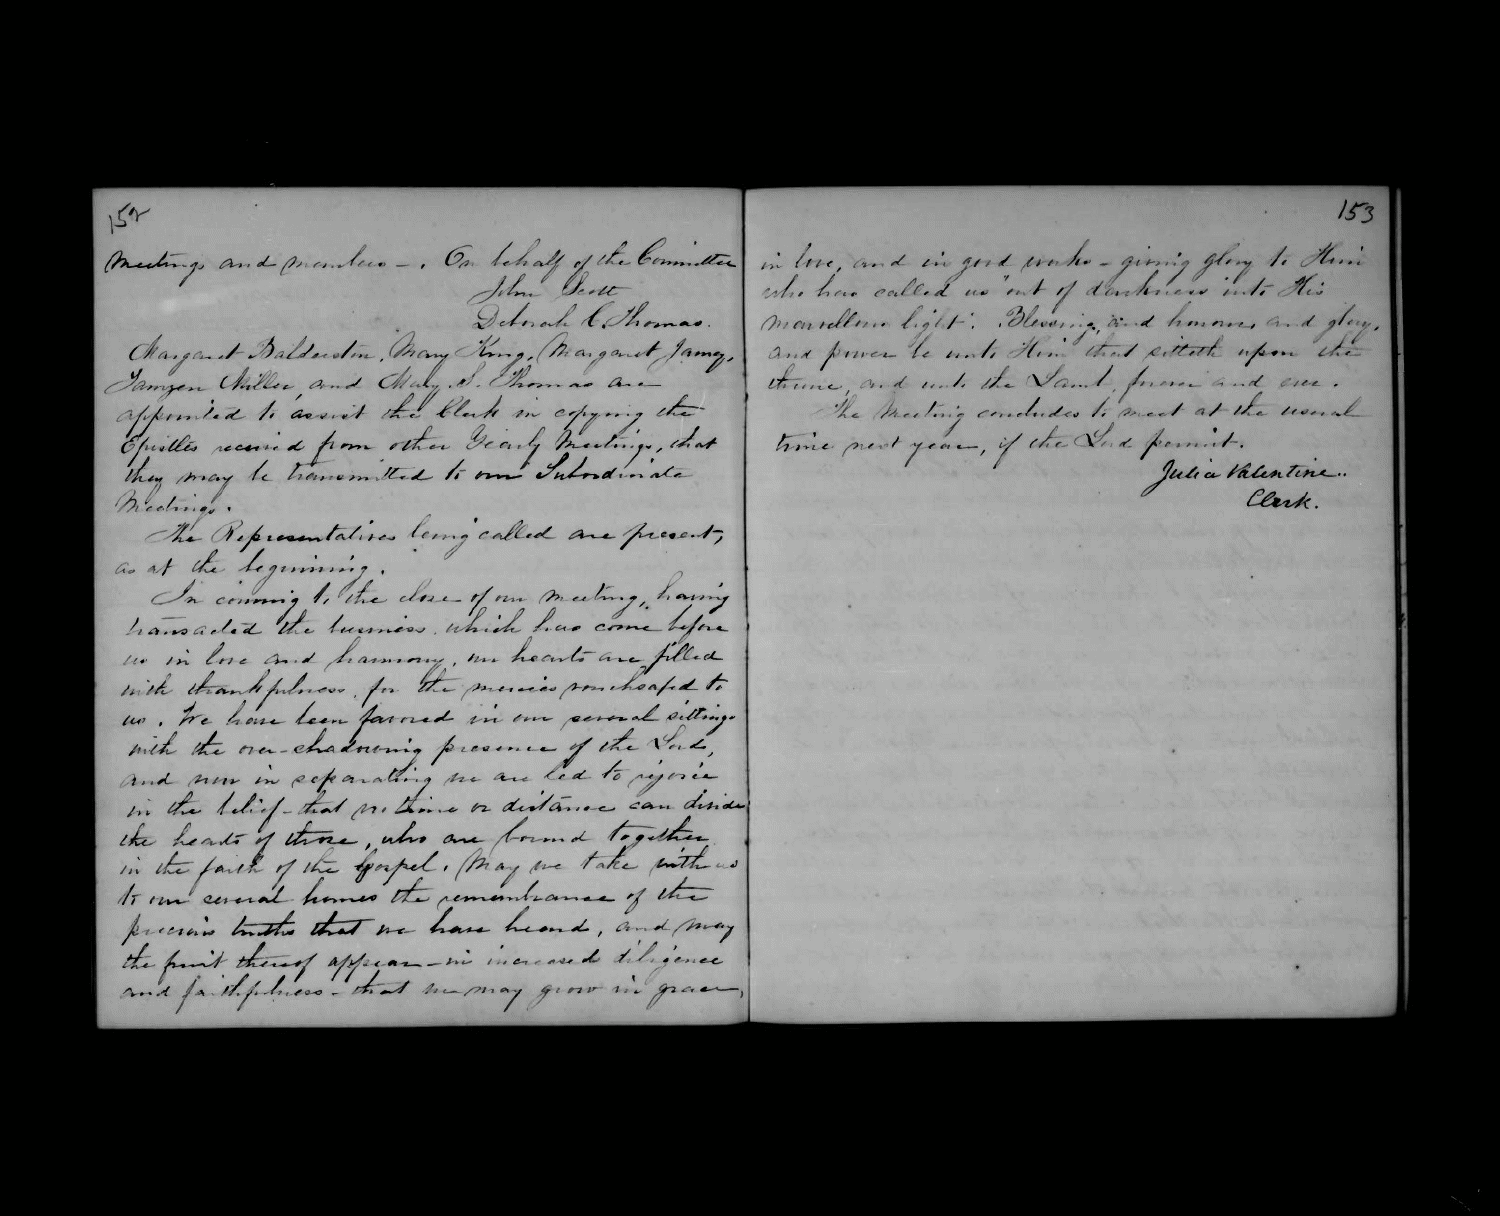 152
Meetings and members -. On behalf of the Committee
John Scott
Deborah C. Thomas.
Margaret Balderston, Mary King, Margaret Janney,
Tamzen Miller, and Mary S. Thomas are
appointed to assist the Clerk in copying the
Epistles received from other Yearly Meetings, that
they may be transmitted to our Subordinate
Meetings.
The Representatives being called are present,
as at the beginning.
In coming to the close of our meeting, having
transacted the business which has come before
us in love and harmony, our hearts are filled
with thankfulness for the mercies vouchsafed to
us. We have been favored in our several sittings
with the over-shadowing presence of the Lord,
and now in separating we are led to rejoice
in the belief - that no time or distance can divide
the hearts of those, who are bound together
in the faith of the Gospel. May we take with us
to our several homes the remembrance of the
precious truths that we have heard, and may
the fruit thereof appear - in increased diligence
and faithfulness - that we may grow in grace,
153
in love, and in good works - giving glory to Him
who has called us "out of darkness into His
marvellous light". Blessing, and honour, and glory,
and power be unto Him that sitteth upon the
throne, and unto the Lamb, forever and ever.
The Meeting concludes to meet at the usual
time next year, if the Lord permit.
Julia Valentine..
Clerk.